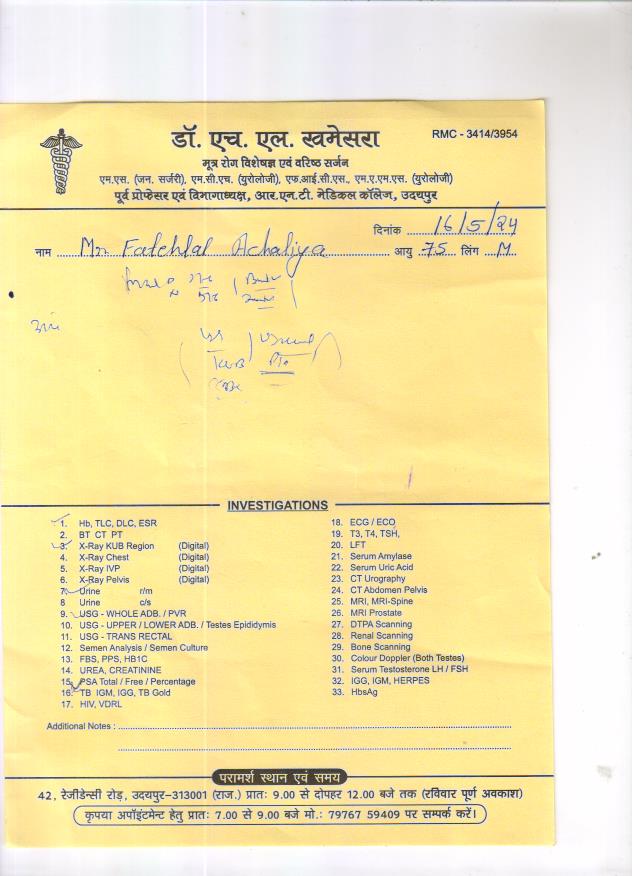 डॉ. एच. एल. खमेसरा
RMC - 3414/3954
मूत्र रोग विशेषज्ञ एवं वरिष्ठ सर्जन
एम.एस. (जन. सर्जरी), एम.सी.एच. (युरोलोजी), एफ.आई.सी.एस., एम.ए.एम.एस. (युरोलोजी)
पूर्व प्रोफेसर एवं विभागाध्यक्ष, आर.एन.टी. मेडिकल कॉलेज, उदयपुर
दिनांक 16/5/24
नाम Mr. Fatehlal Achaliya आयु 75 लिंग M
INVESTIGATIONS
1. Hb, TLC, DLC, ESR
2. BT CT PT
3. X-Ray KUB Region (Digital)
4. X-Ray Chest (Digital)
5. X-Ray IVP (Digital)
6. X-Ray Pelvis (Digital)
7. Urine r/m
8 Urine c/s
9. USG - WHOLE ADB. / PVR
10. USG - UPPER / LOWER ADB. / Testes Epididymis
11. USG - TRANS RECTAL
12. Semen Analysis / Semen Culture
13. FBS, PPS, HB1C
14. UREA, CREATININE
15. PSA Total / Free / Percentage
16. TB IGM, IGG, TB Gold
17. HIV, VDRL
18. ECG / ECO
19. T3, T4, TSH,
20. LFT
21. Serum Amylase
22. Serum Uric Acid
23. CT Urography
24. CT Abdomen Pelvis
25. MRI, MRI-Spine
26. MRI Prostate
27. DTPA Scanning
28. Renal Scanning
29. Bone Scanning
30. Colour Doppler (Both Testes)
31. Serum Testosterone LH / FSH
32. IGG, IGM, HERPES
33. HbsAg
Additional Notes :
परामर्श स्थान एवं समय
42, रेजीडेन्सी रोड़, उदयपुर-313001 (राज.) प्रातः 9.00 से दोपहर 12.00 बजे तक (रविवार पूर्ण अवकाश)
कृपया अपॉइंटमेन्ट हेतु प्रातः 7.00 से 9.00 बजे मो.: 79767 59409 पर सम्पर्क करें।